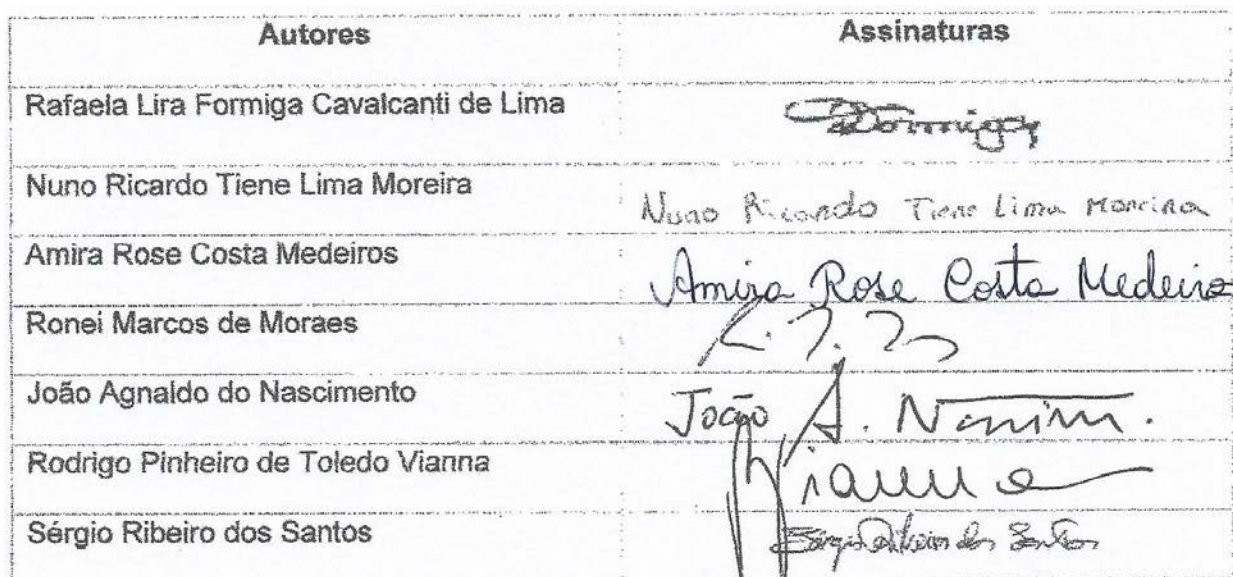 Autores Assinaturas
Rafaela Lira Formiga Cavalcanti de Lima
Nuno Ricardo Tiene Lima Moreira Nuno Ricardo Tiene Lima Moreira
Amira Rose Costa Medeiros Amira Rose Costa Medeiros
Ronei Marcos de Moraes
João Agnaldo do Nascimento João A. Nascim.
Rodrigo Pinheiro de Toledo Vianna Vianna
Sérgio Ribeiro dos Santos Sérgio Ribeiro dos Santos